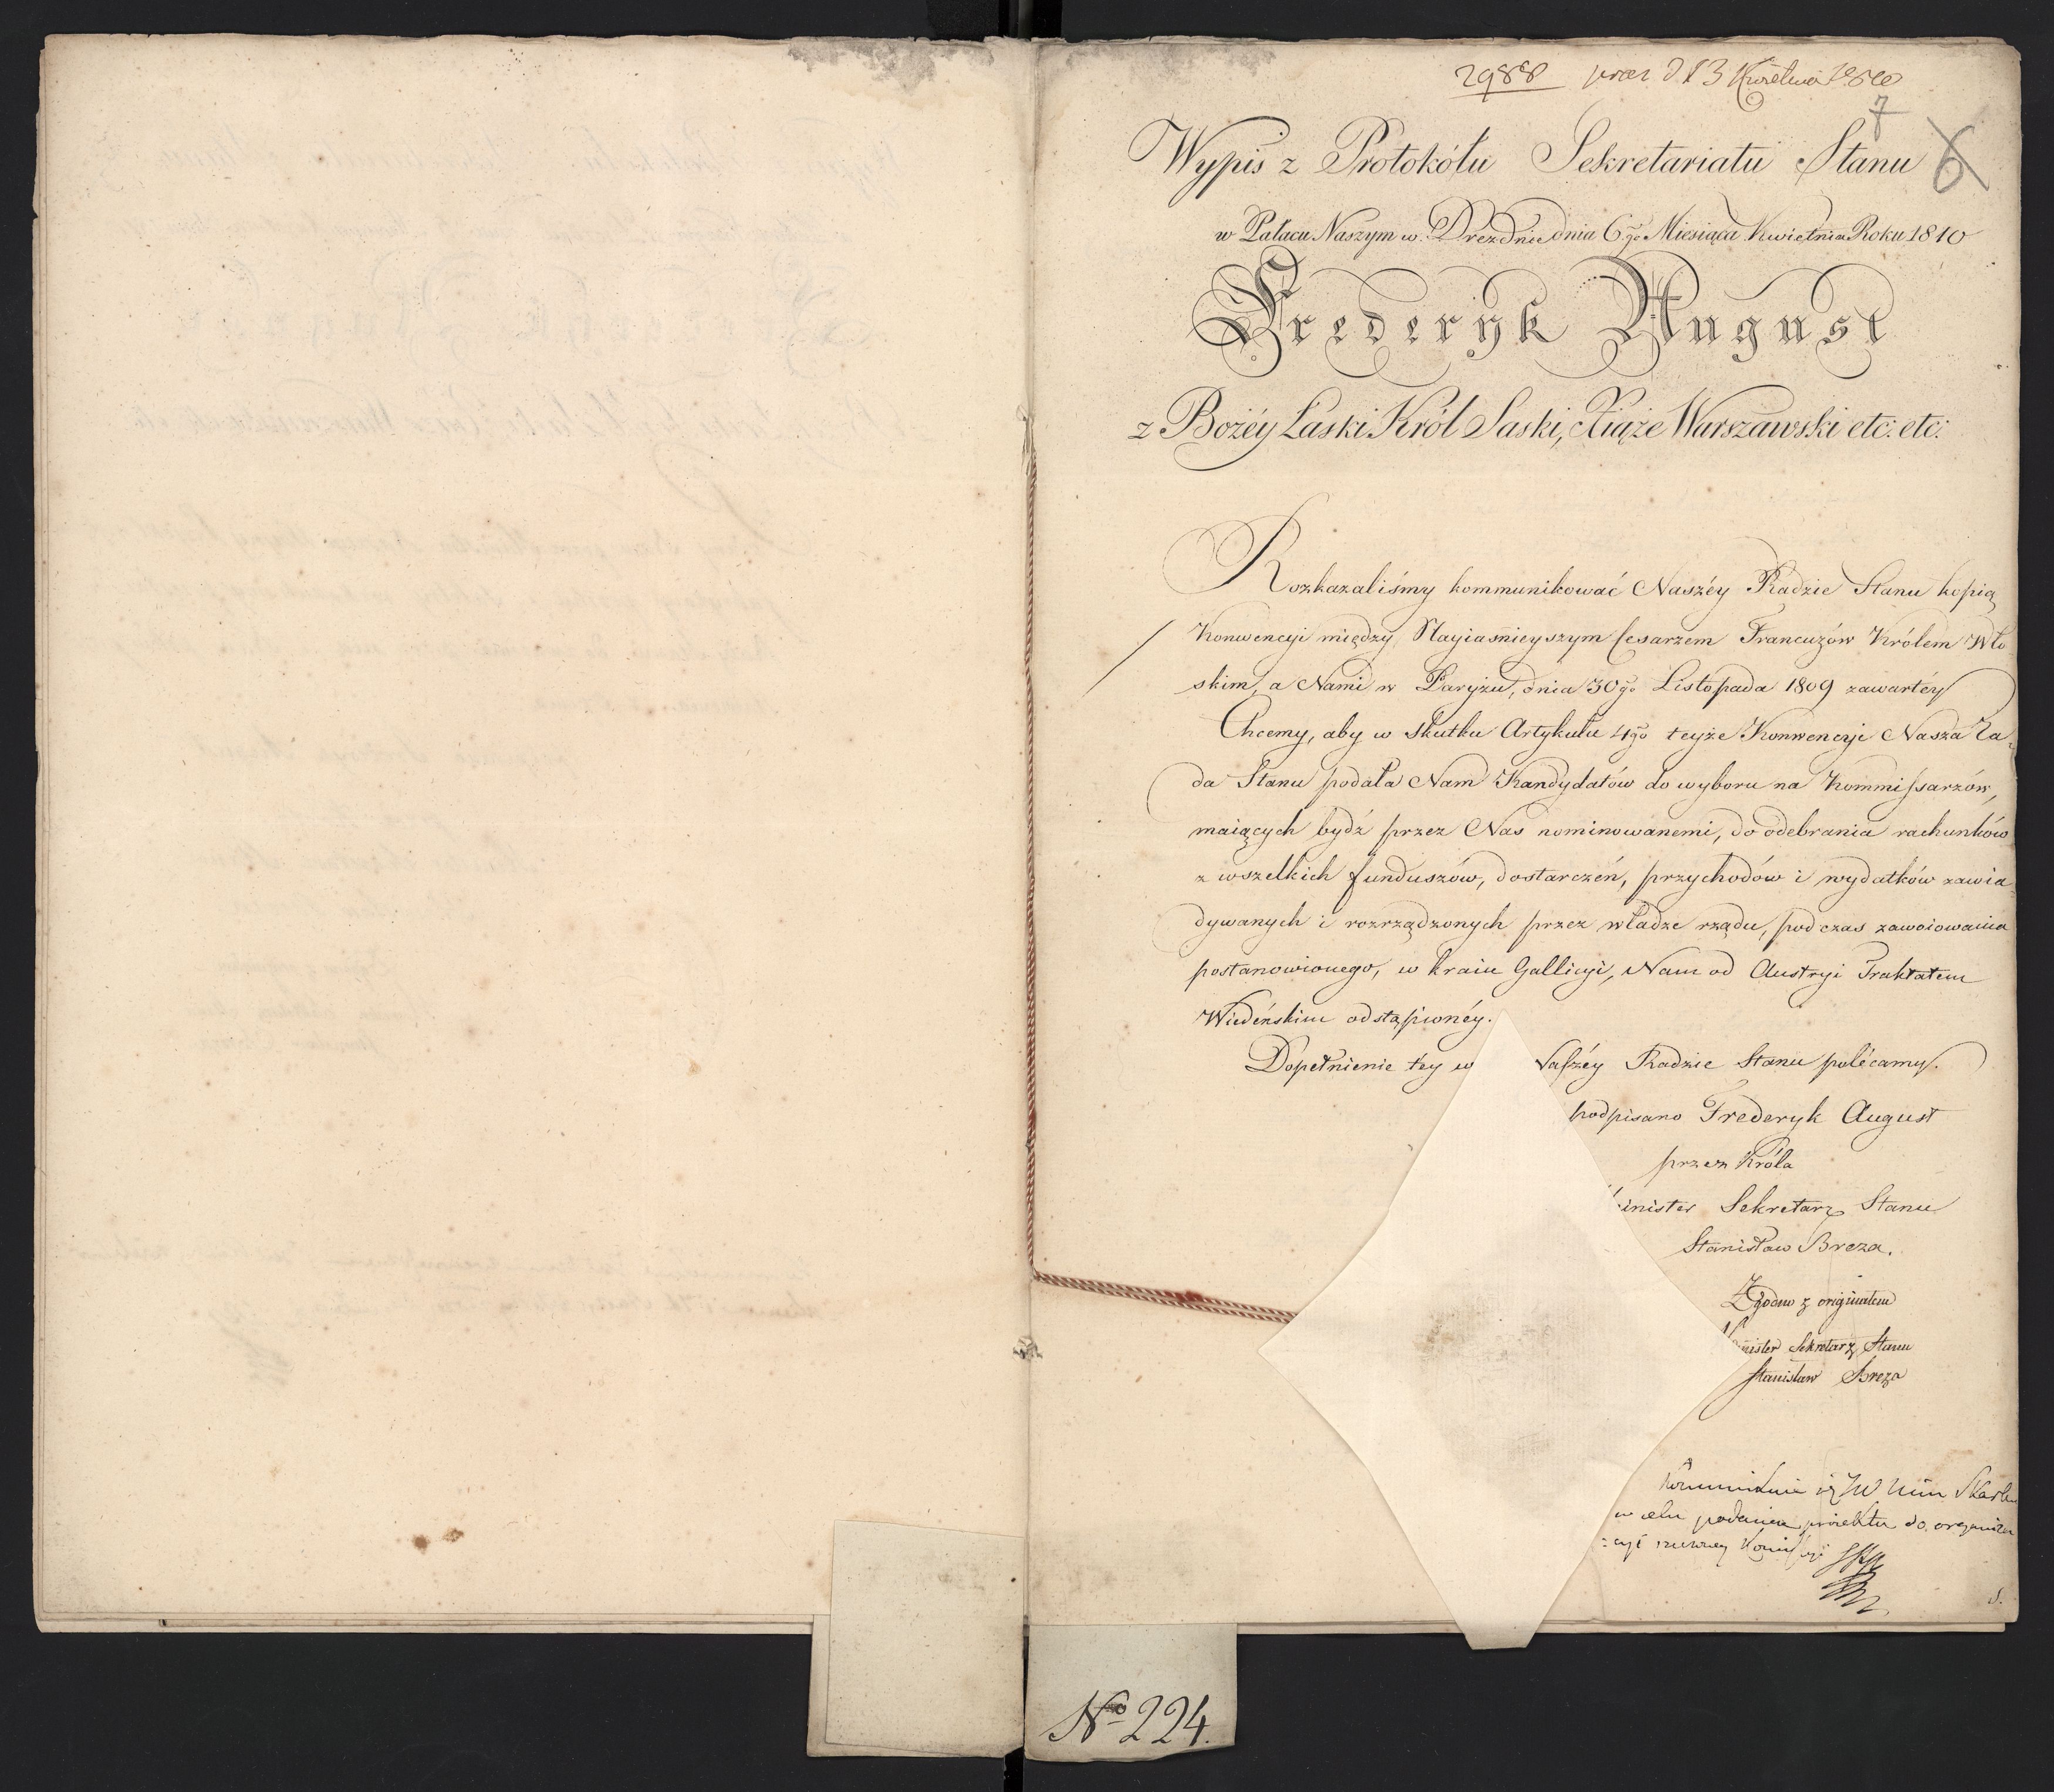 2988 prez. d 13 Kwietnia 1810
7
Wypis z Protokółu Sekretariatu Stanu 6
w Pałacu Naszym w Dreznie dnia 6go Miesiąca Kwietnia Roku 1810
Frederyk August
z Bożéy Łaski Król Saski, Xiąże Warszawski etc: etc:
Rozkazaliśmy kommunikować Naszéy Radzie Stanu kopią
Konwencyi między Nayiaśnieyszym Cesarzem Francuzów Królem Wło
skim, a Nami w Paryżu, dnia 30go Listopada 1809 zawartéy
Chcemy, aby w skutku Artykułu 4go teyże Konwencyi Nasza Ra
da Stanu podała Nam Kandydatów do wyboru na Kommissarzów,
maiących bydź przez Nas nominowanemi, do odebrania rachunków
z wszelkich funduszów, dostarczeń, przychodów i wydatków zawia
dywanych i rozrządzonych przez władze rządu, podczas zawoiowania
postanowionego, w kraiu Gallicyi, Nam od Austryi Traktatem
Wiedeńskim odstąpionéy.
Dopełnienie téy w Naszéy Radzie Stanu polécamy.
podpisano Frederyk August
przez Króla
inister Sekretarz Stanu
Stanisław Breza.
Zgodno z originałem
Minister Sekretarz Stanu
Stanisław Breza
Kommunikuie się JW Min Skarbu
w celu podania proiektu do organiza
:cyi Kommissyi
S.
No 224.